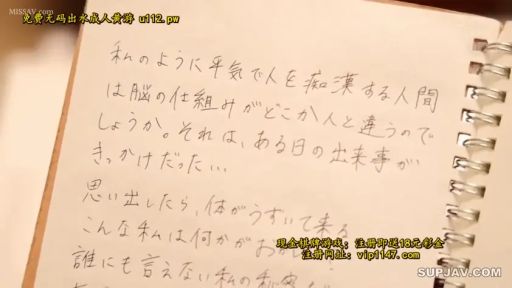 MISSAV.com
免费无码出水成人黄游 u112.pw
私のように平気で人を痴漢する人間
は脳の仕組みがどこか人と違うので
しょうか。それは、ある日の出来事が
きっかけだった…
思い出したら、体がうずいて来る
こんな私は何かがお
现金棋牌游戏；注册即送18元彩金
注册网址：vip1147.com
誰にも言えない私の秘密
SUPJAV.COM